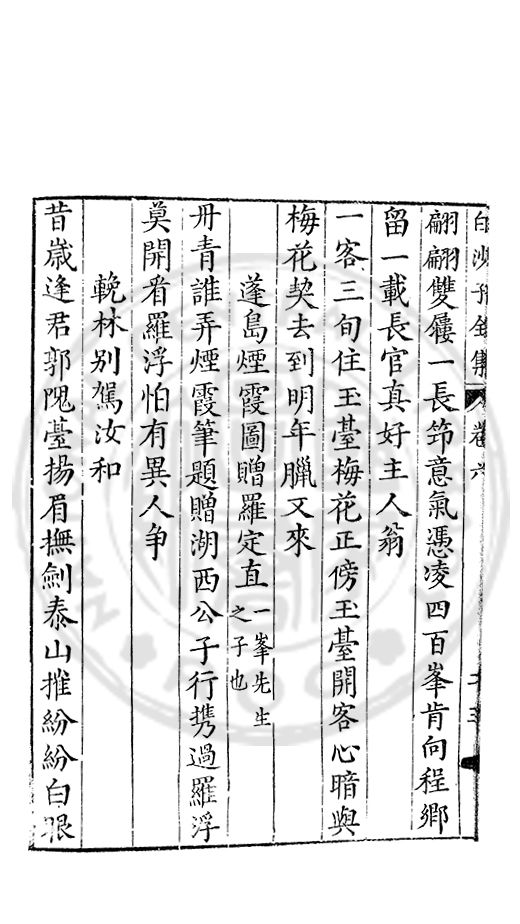 白沙子全集 卷六
翩翩雙屨一長筇意氣憑凌四百峯肯向程鄉
留一載長官真好主人翁
一客三旬住玉臺梅花正傍玉臺開客心暗與
梅花契去到明年臘又來
蓬島煙霞圖贈羅定直一峯先生之子也
丹青誰弄煙霞筆題贈湖西公子行攜過羅浮
莫開看羅浮怕有異人爭
輓林別駕汝和
昔歲逢君郭隗臺揚眉撫劍泰山摧紛紛白眼